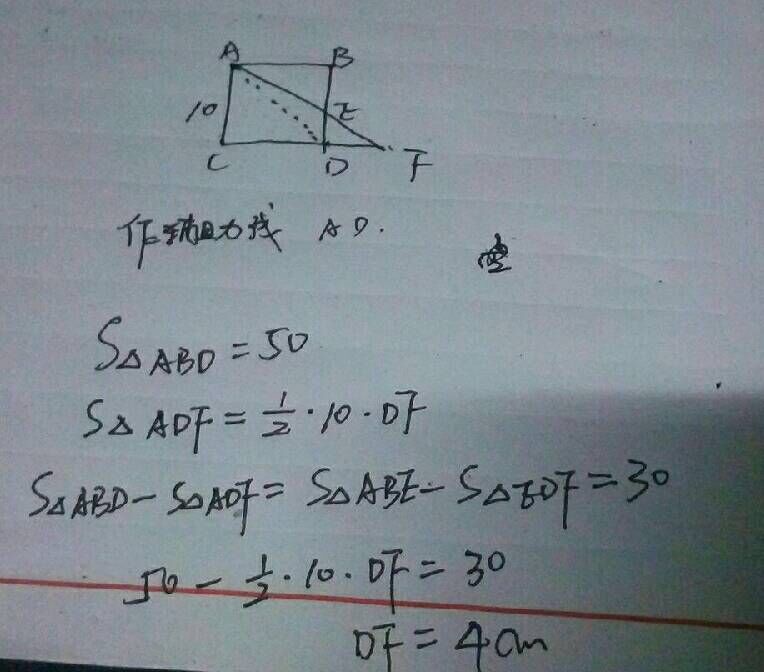 A B
10 E
C D F
作辅助线 AD.
S△ABD = 50
S△ADF = 1/2 · 10 · DF
S△ABD - S△ADF = S△ABE - S△EDF = 30
50 - 1/2 · 10 · DF = 30
DF = 4cm